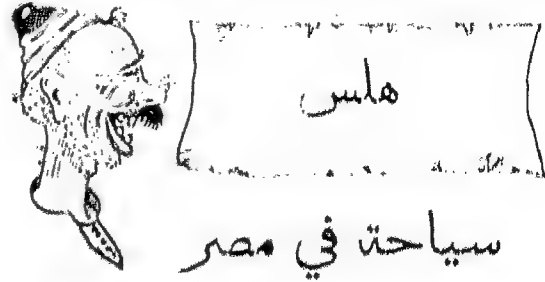 هلس
سياحة في مصر